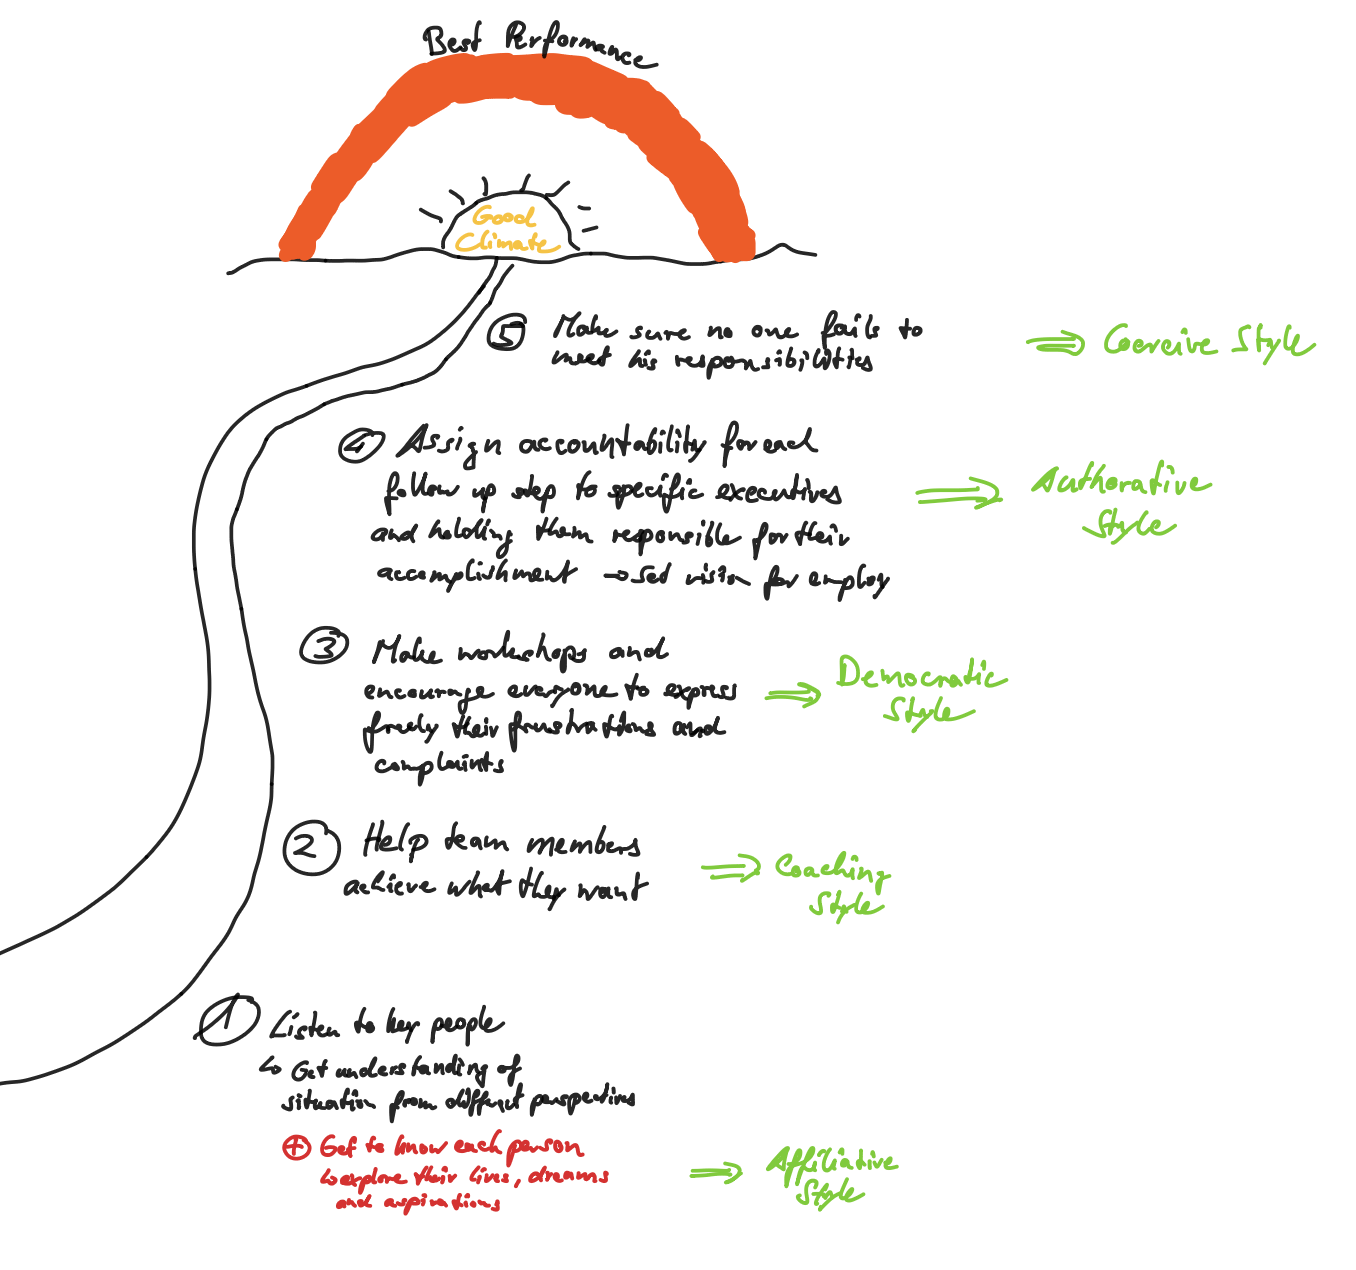 Best Performance
Good
Climate
5 Make sure no one fails to
meet his responsibilities
⇒ Coercive Style
4 Assign accountability for each
follow up step to specific executives
and holding them responsible for their
accomplishment → Set vision for employ
⇒ Authorative
Style
3 Make workshops and
encourage everyone to express
freely their frustrations and
complaints
⇒ Democratic
Style
2 Help team members
achieve what they want
⇒ Coaching
Style
1 Listen to key people
↳ Get understanding of
situation from different perspectives
⊕ Get to know each person
↳ explore their lives, dreams
and aspirations
⇒ Affiliative
Style